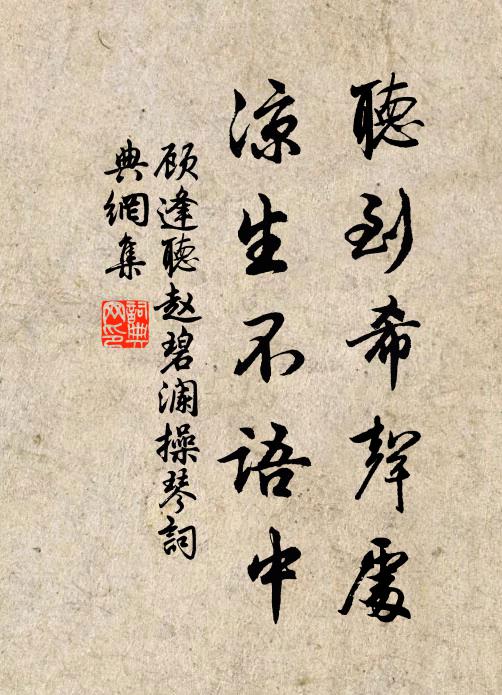 聽到希聲處
凉生不語中
顾逢聽赵碧澜操琴詞
典網集
詞典
网印